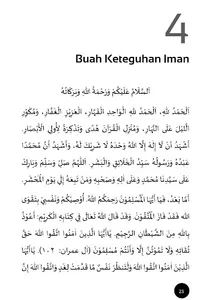 4
Buah Keteguhan Iman
اَلسَّلَامُ عَلَيْكُمْ وَرَحْمَةُ اللهِ وَبَرَكَاتُهُ
اَلْحَمْدُ لِلّٰهِ، اَلْحَمْدُ لِلّٰهِ الْوَاحِدِ الْقَهَّارِ، الْعَزِيْزِ الْغَفَّارِ، وَمُكَوِّرِ
اللَّيْلَ عَلَى النَّهَارِ، وَمُنْزِلِ الْقُرْآنِ هُدًى وَتَذْكِرَةً لِأُولِي الْأَبْصَارِ.
أَشْهَدُ أَنْ لَا إِلٰهَ إِلَّا اللهُ وَحْدَهُ لَا شَرِيْكَ لَهُ، وَأَشْهَدُ أَنَّ مُحَمَّدًا
عَبْدُهُ وَرَسُوْلُهُ سَيِّدُ الْخَلَائِقِ وَالْبَشَرِ. اَللّٰهُمَّ صَلِّ وَسَلِّمْ وَبَارِكْ
عَلَى سَيِّدِنَا مُحَمَّدٍ وَعَلَى آلِهِ وَصَحْبِهِ وَمَنْ تَبِعَهُ إِلَى يَوْمِ الْمَحْشَرِ.
أَمَّا بَعْدُ، فَيَا أَيُّهَا الْمُسْلِمُوْنَ رَحِمَكُمُ اللهُ، أُوْصِيْكُمْ وَنَفْسِيْ بِتَقْوَى
اللهِ فَقَدْ فَازَ الْمُتَّقُوْنَ. وَقَدْ قَالَ اللهُ تَعَالَى فِي كِتَابِهِ الْكَرِيْمِ: أَعُوْذُ
بِاللهِ مِنَ الشَّيْطَانِ الرَّجِيْمِ. يَا أَيُّهَا الَّذِيْنَ آمَنُوا اتَّقُوا اللهَ حَقَّ
تُقَاتِهِ وَلَا تَمُوْتُنَّ إِلَّا وَأَنْتُمْ مُسْلِمُوْنَ (آل عمران: ١٠٢). يَا أَيُّهَا
الَّذِيْنَ آمَنُوا اتَّقُوا اللهَ وَلْتَنْظُرْ نَفْسٌ مَا قَدَّمَتْ لِغَدٍ وَاتَّقُوا اللهَ إِنَّ
25